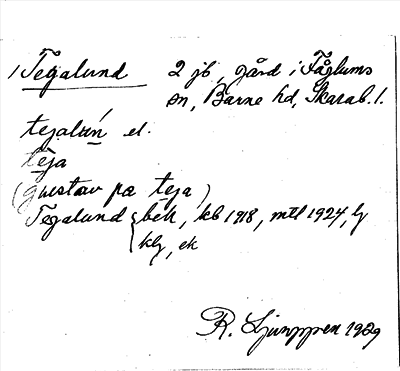 1 Tegalund 2 jb, gård i Fåglums
sn, Barne hd, Skarab. l.
tejalún el.
teja
(gustav pa teja)
Tegalund bek, kb 1918, mtl 1924, lj
klj, ek
R. Ljunggren 1929